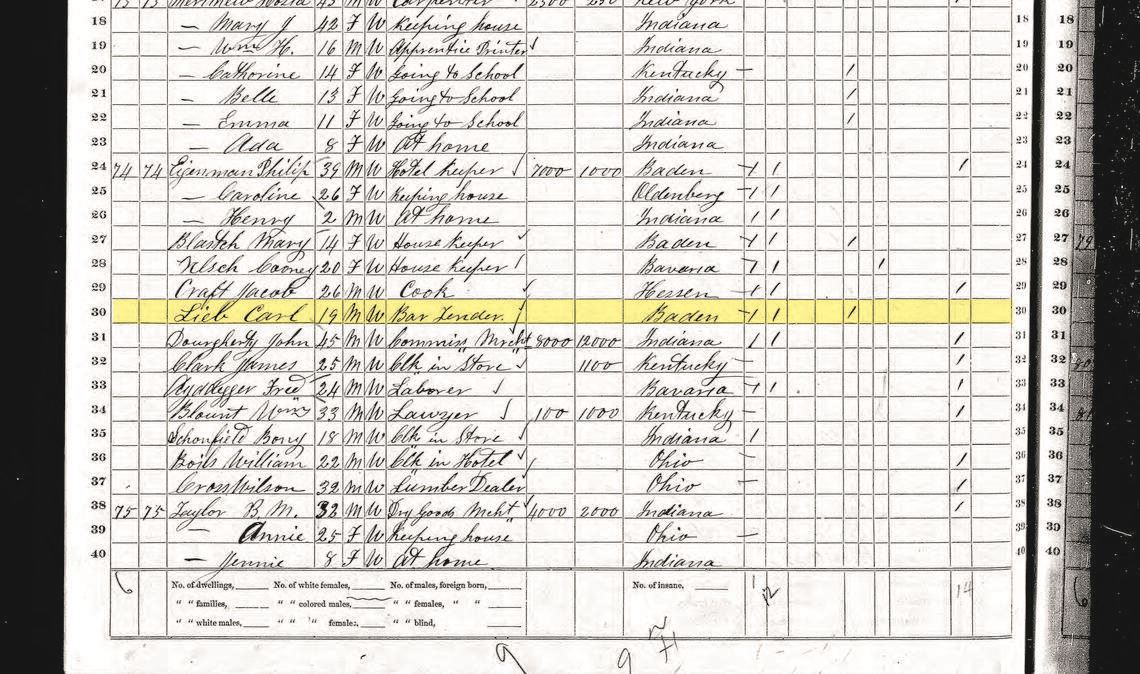 73 73 45 Carpenter 2500 250 New York
18 — Mary J 42 F W Keeping house Indiana 18 18
19 — Wm H. 16 M W Apprentice Printer Indiana 19 19
20 — Catharine 14 F W Going to School Kentucky — / 20 20
21 — Belle 13 F W Going to School Indiana / 21 21
22 — Emma 11 F W Going to School Indiana / 22 22
23 — Ada 8 F W At home Indiana 23 23
24 74 74 Eigenman Philip 39 M W Hotel Keeper 7000 1000 Baden 1 1 / 24 24
25 — Caroline 26 F W Keeping house Oldenberg 1 1 25 25
26 — Henry 2 M W At home Indiana 1 1 26 26
27 Mary 14 F W House Keeper Baden 1 1 / 27 27 79
28 20 F W House Keeper Bavaria 1 1 / 28 28
29 Craft Jacob 26 M W Cook Hessen 1 1 / 29 29
30 Lieb Carl 19 M W Bar Tender. Baden 1 1 / 30 30
31 Dougherty John 45 M W Commiss Mrcht 8000 12000 Indiana 1 1 / 31 31
32 Clark James 25 M W Clk in Store 1100 Kentucky — / 32 32
33 Fred 24 M W Laborer Bavaria 1 1 / 33 33
34 Blount Wm 33 M W Lawyer 100 1000 Kentucky — / 34 34
35 Schonfield Bony 18 M W Clk in Store Indiana 1 35 35
36 Boils William 22 M W Clk in Hotel Ohio — / 36 36
37 Cross Wilson 32 M W Lumber Dealer Ohio — / 37 37
38 75 75 Taylor B. M. 32 M W Dry Goods Mcht 4000 2000 Indiana / 38 38
39 — Annie 25 F W Keeping house Ohio — 39 39
40 — Jennie 8 F W At home Indiana 40 40
6 No. of dwellings, No. of white females, No. of males, foreign born, No. of insane, 1 12 14
" " families, " " colored males, " " females, " "
" " white males, " " " females, " " blind,
9 9